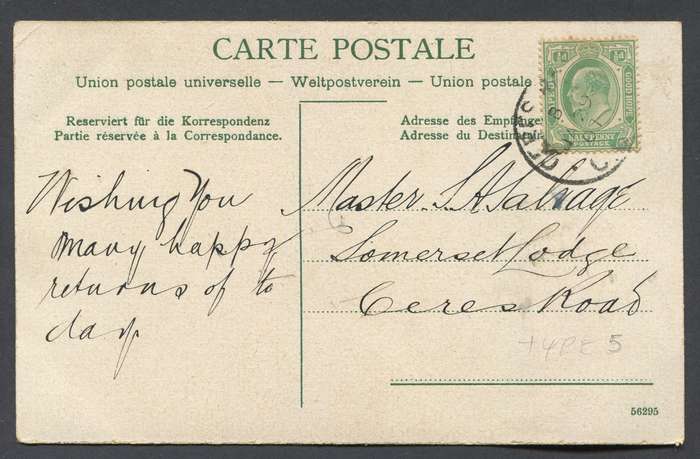 CARTE POSTALE
Union postale universelle — Weltpostverein — Union postale
Reserviert für die Korrespondenz
Partie réservée à la Correspondance.
Adresse des Empfänge
Adresse du Destinatair
½d ½d
GOOD HOPE
HALF PENNY
POSTAGE
CERES
Wishing You
many happy
returns of to
day
Master. S A Salvage
Somerset Lodge
Ceres Road
TYPE 5
56295